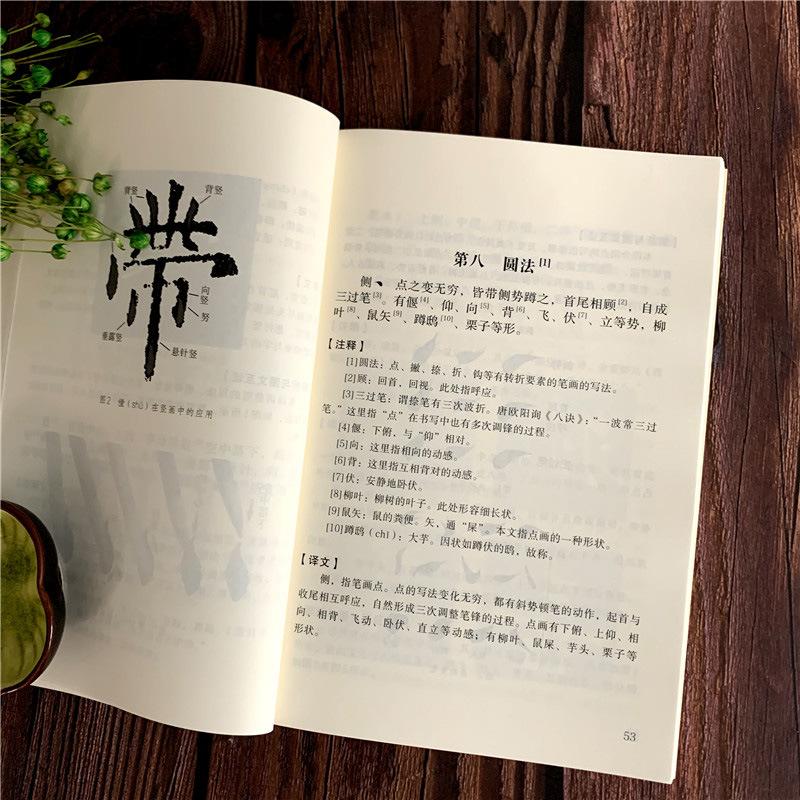 帶
背竖
背竖
向竖
努
垂露竖
悬针竖
图2 俊(shù)在竖画中的应用
第八 圆法[1]
侧丶 点之变无穷，皆带侧势蹲之，首尾相顾[2]，自成
三过笔[3]。有偃[4]、仰、向[5]、背[6]、飞、伏[7]、立等势，柳
叶[8]、鼠矢[9]、蹲鸱[10]、栗子等形。
【注释】
[1]圆法：点、撇、捺、折、钩等有转折要素的笔画的写法。
[2]顾：回首，回视。此处指呼应。
[3]三过笔：谓捺笔有三次波折。唐欧阳询《八诀》：“一波常三过
笔。”这里指“点”在书写中也有多次调锋的过程。
[4]偃：下俯，与“仰”相对。
[5]向：这里指相向的动感。
[6]背：这里指互相背对的动感。
[7]伏：安静地卧伏。
[8]柳叶：柳树的叶子。此处形容细长状。
[9]鼠矢：鼠的粪便。矢，通“屎”。本文指点画的一种形状。
[10]蹲鸱（chī）：大芋。因状如蹲伏的鸱，故称。
【译文】
侧，指笔画点。点的写法变化无穷，都有斜势顿笔的动作，起首与
收尾相互呼应，自然形成三次调整笔锋的过程。点画有下俯、上仰、相
向、相背、飞动、卧伏、直立等动感；有柳叶、鼠屎、芋头、栗子等
形状。
53